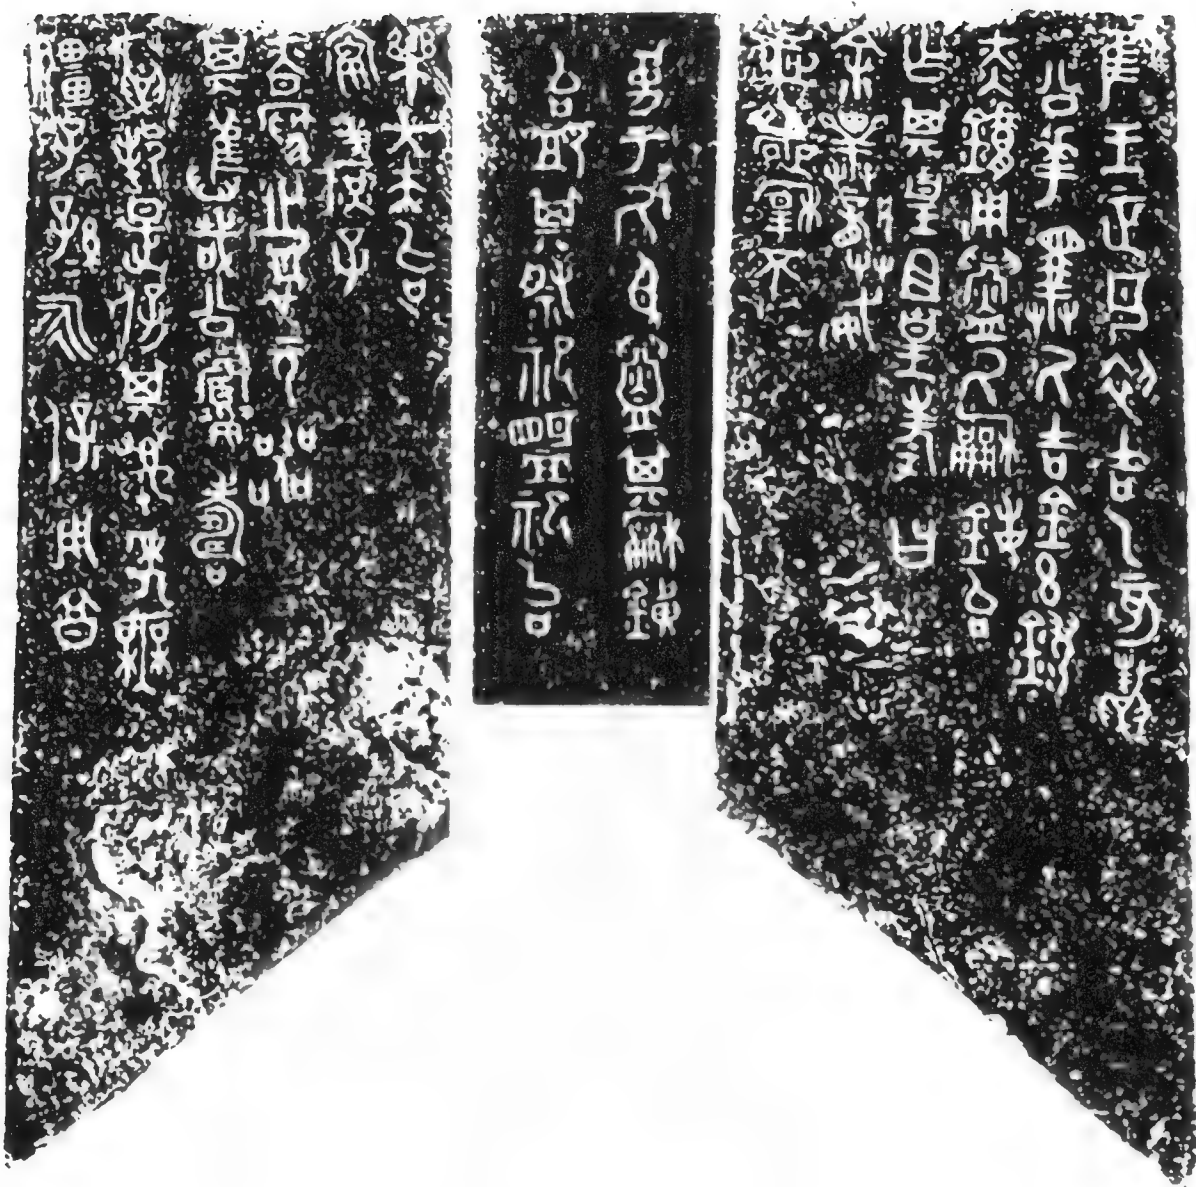 隹王正月初吉乙亥鼄
公華𢍰氒吉金玄鏐
赤鏞用鑄氒龢鐘台
乍其皇且皇考曰
余畢龏威
忌惄穆不
㒸于氒身鑄其龢鐘
台卹其祭祀盟祀台
樂大夫台
宴士庶子
昚爲之名元器
其舊哉公眉壽
鼄邦是保其萬年無
疆子=孫=永保用享